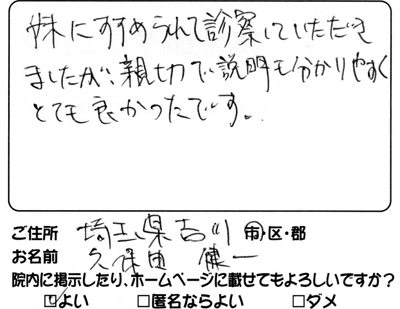 妹にすすめられて診察していただき
ましたが、親切で説明も分かりやすく
とても良かったです。
ご住所 埼玉県吉川市・区・郡
お名前 久保田 健一
院内に掲示したり、ホームページに載せてもよろしいですか?
☑よい □匿名ならよい □ダメ